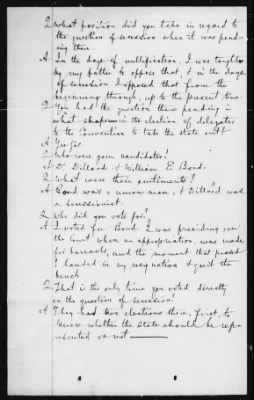 Q What position did you take in regard to
the question of secession when it was pend-
ing there.
A In the days of nullification, I was taught
by my father to oppose that, & in the days
of secession I opposed that from the
beginning through, up to the present time.
Q You had the question there pending in
what shape in the election of delegates
to the Convention to take the state out?
A Yes sir
Q Who were your candidates?
A Dr Dillard & William E. Bond.
Q What were their sentiments?
A Bond was a union man, & Dillard was
a secessionist.
Q Who did you vote for?
A I voted for Bond. I was presiding over
the Court when an appropriation was made
for barracks, and the moment that passed
I handed in my resignation & quit the
bench
Q That is the only time you voted directly
on the question of secession?
A They had two elections there, first, to
know whether the State should be rep-
resented or not